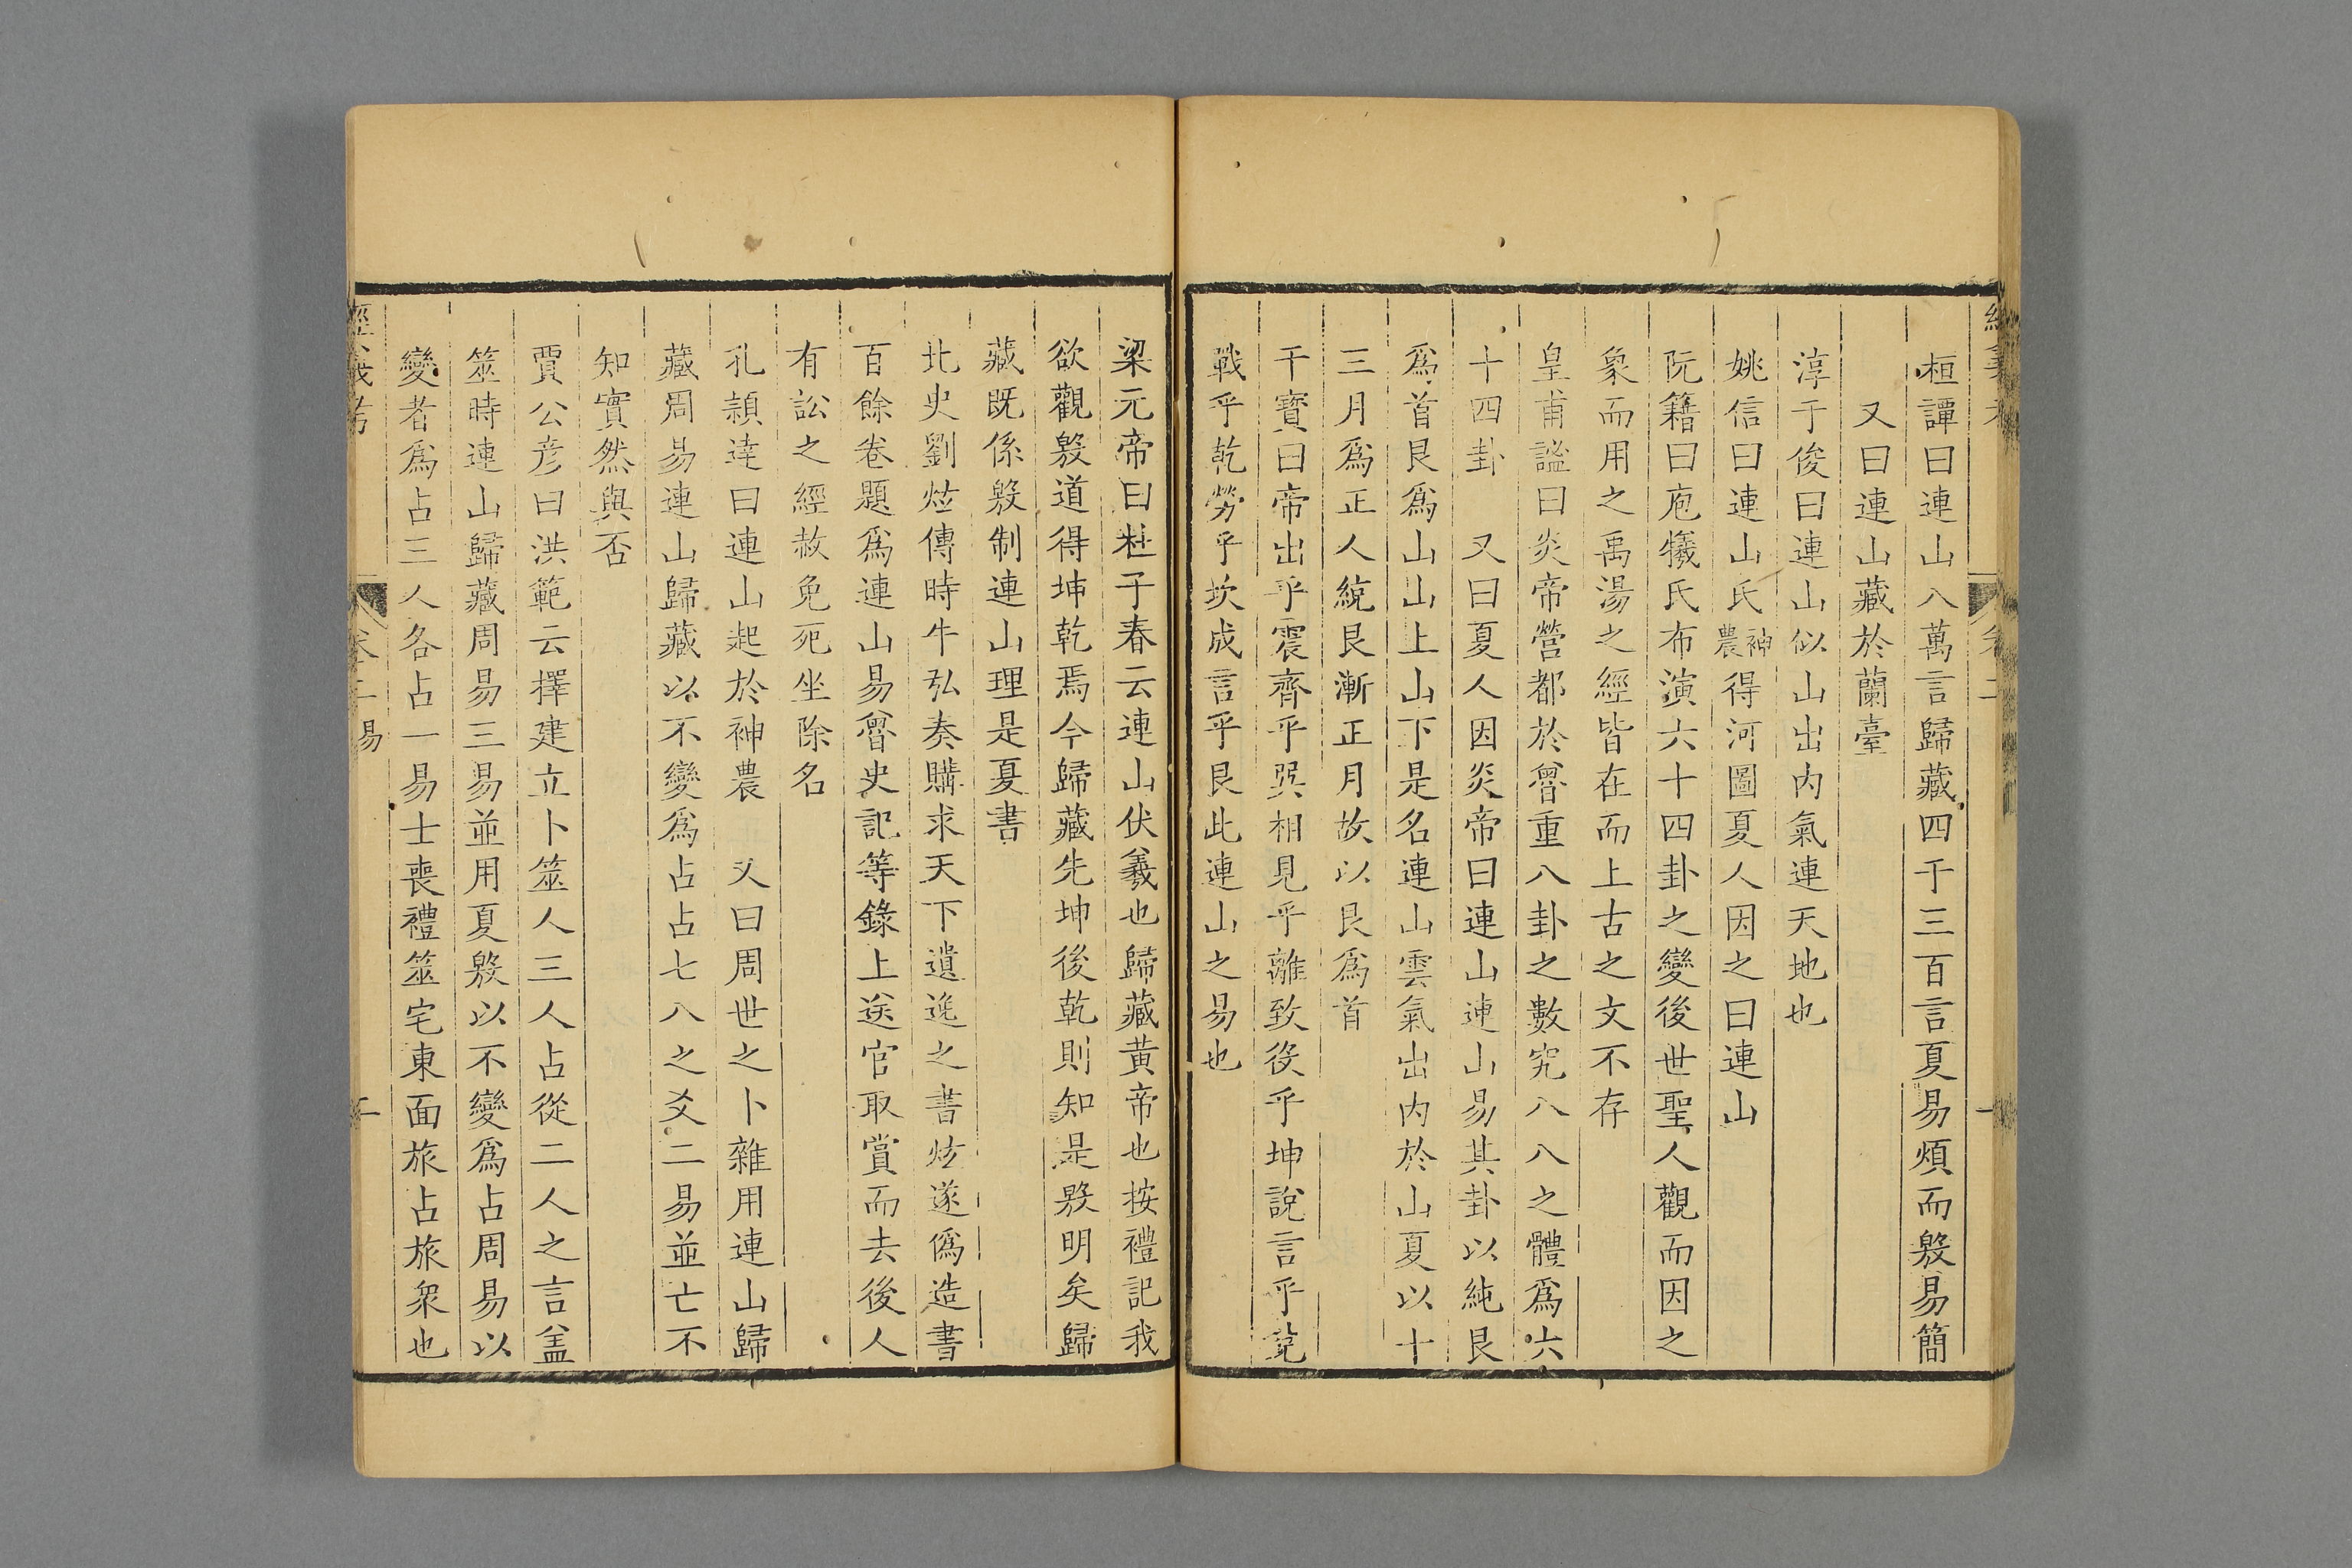 桓譚曰連山八萬言歸藏四千三百言夏易煩而殷易簡
又曰連山藏於蘭臺
淳于俊曰連山似山出內氣連天地也
姚信曰連山氏神農得河圖夏人因之曰連山
阮籍曰庖犧氏布演六十四卦之變後世聖人觀而因之
象而用之禹湯之經皆在而上古之文不存
皇甫謐曰炎帝營都於曾重八卦之數究八八之體爲六
十四卦　又曰夏人因炎帝曰連山連山易其卦以純艮
爲首艮爲山山上山下是名連山雲氣出內於山夏以十
三月爲正人統艮漸正月故以艮爲首
干寶曰帝出乎震齊乎巽相見乎離致役乎坤說言乎兌
戰乎乾勞乎坎成言乎艮此連山之易也
梁元帝曰杜子春云連山伏羲也歸藏黃帝也按禮記我
欲觀殷道得坤乾焉今歸藏先坤後乾則知是殷明矣歸
藏既係殷制連山理是夏書
北史劉炫傳時牛弘奏購求天下遺逸之書炫遂僞造書
百餘卷題爲連山易曾史記等錄上送官取賞而去後人
有訟之經赦免死坐除名
孔穎達曰連山起於神農　又曰周世之卜雜用連山歸
藏周易連山歸藏以不變爲占占七八之爻二易並亡不
知實然與否
賈公彥曰洪範云擇建立卜筮人三人占從二人之言盖
筮時連山歸藏周易三易並用夏殷以不變爲占周易以
變者爲占三人各占一易士喪禮筮宅東面旅占旅衆也
經義考　卷二　易　二